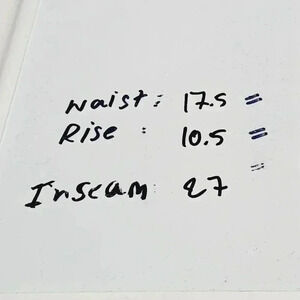 waist: 17.5 =
Rise : 10.5 =
Inseam: 27 =